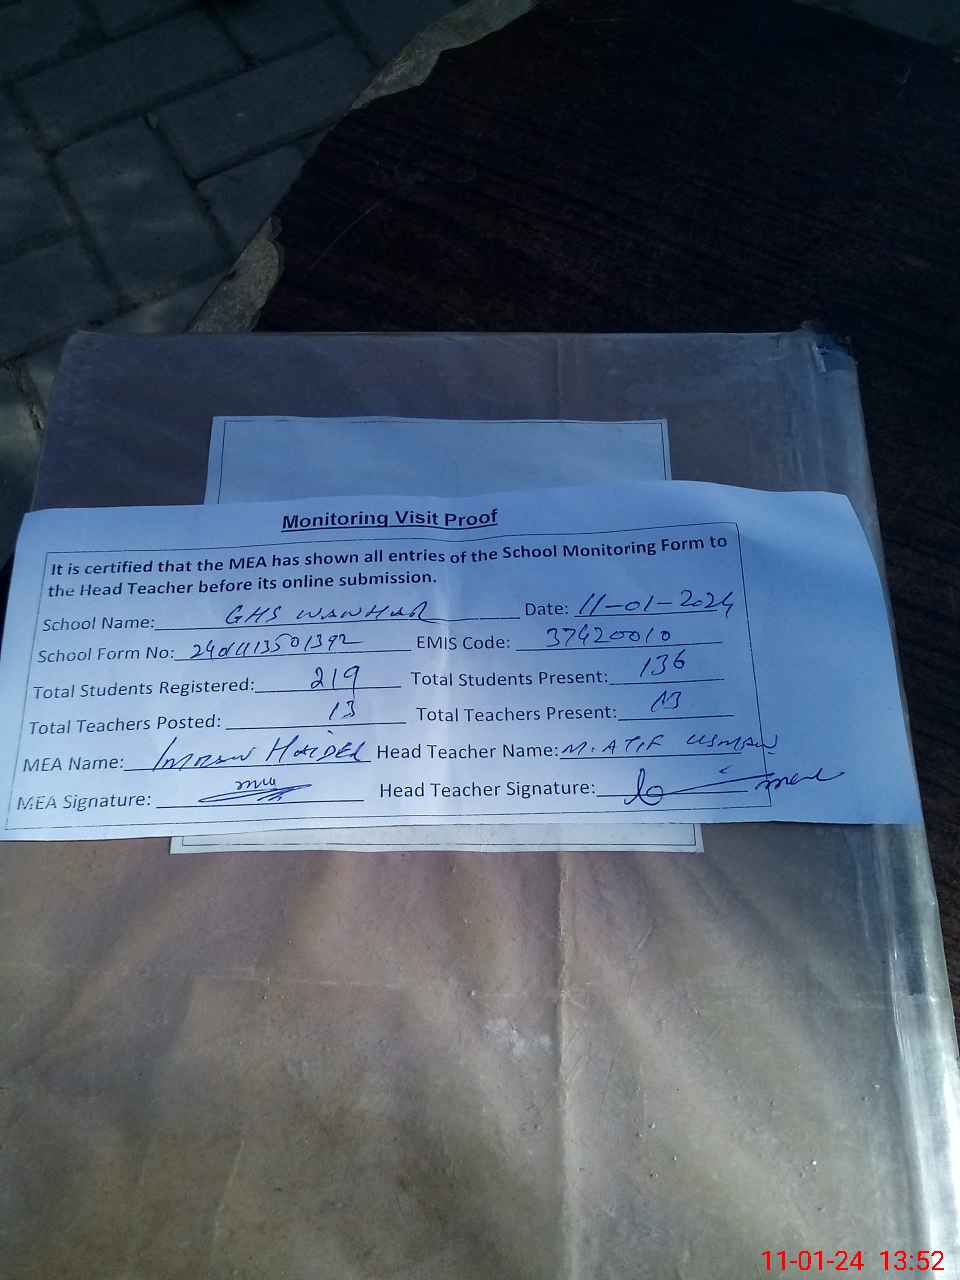 Monitoring Visit Proof
It is certified that the MEA has shown all entries of the School Monitoring Form to
the Head Teacher before its online submission.
School Name: GHS WANHAR Date: 11-01-2024
School Form No: EMIS Code: 37420010
Total Students Registered: 219 Total Students Present: 136
Total Teachers Posted: 13 Total Teachers Present: 13
MEA Name: IMRAN HAIDER Head Teacher Name: M. ATIF USMAN
MEA Signature: Head Teacher Signature:
11-01-24 13:52